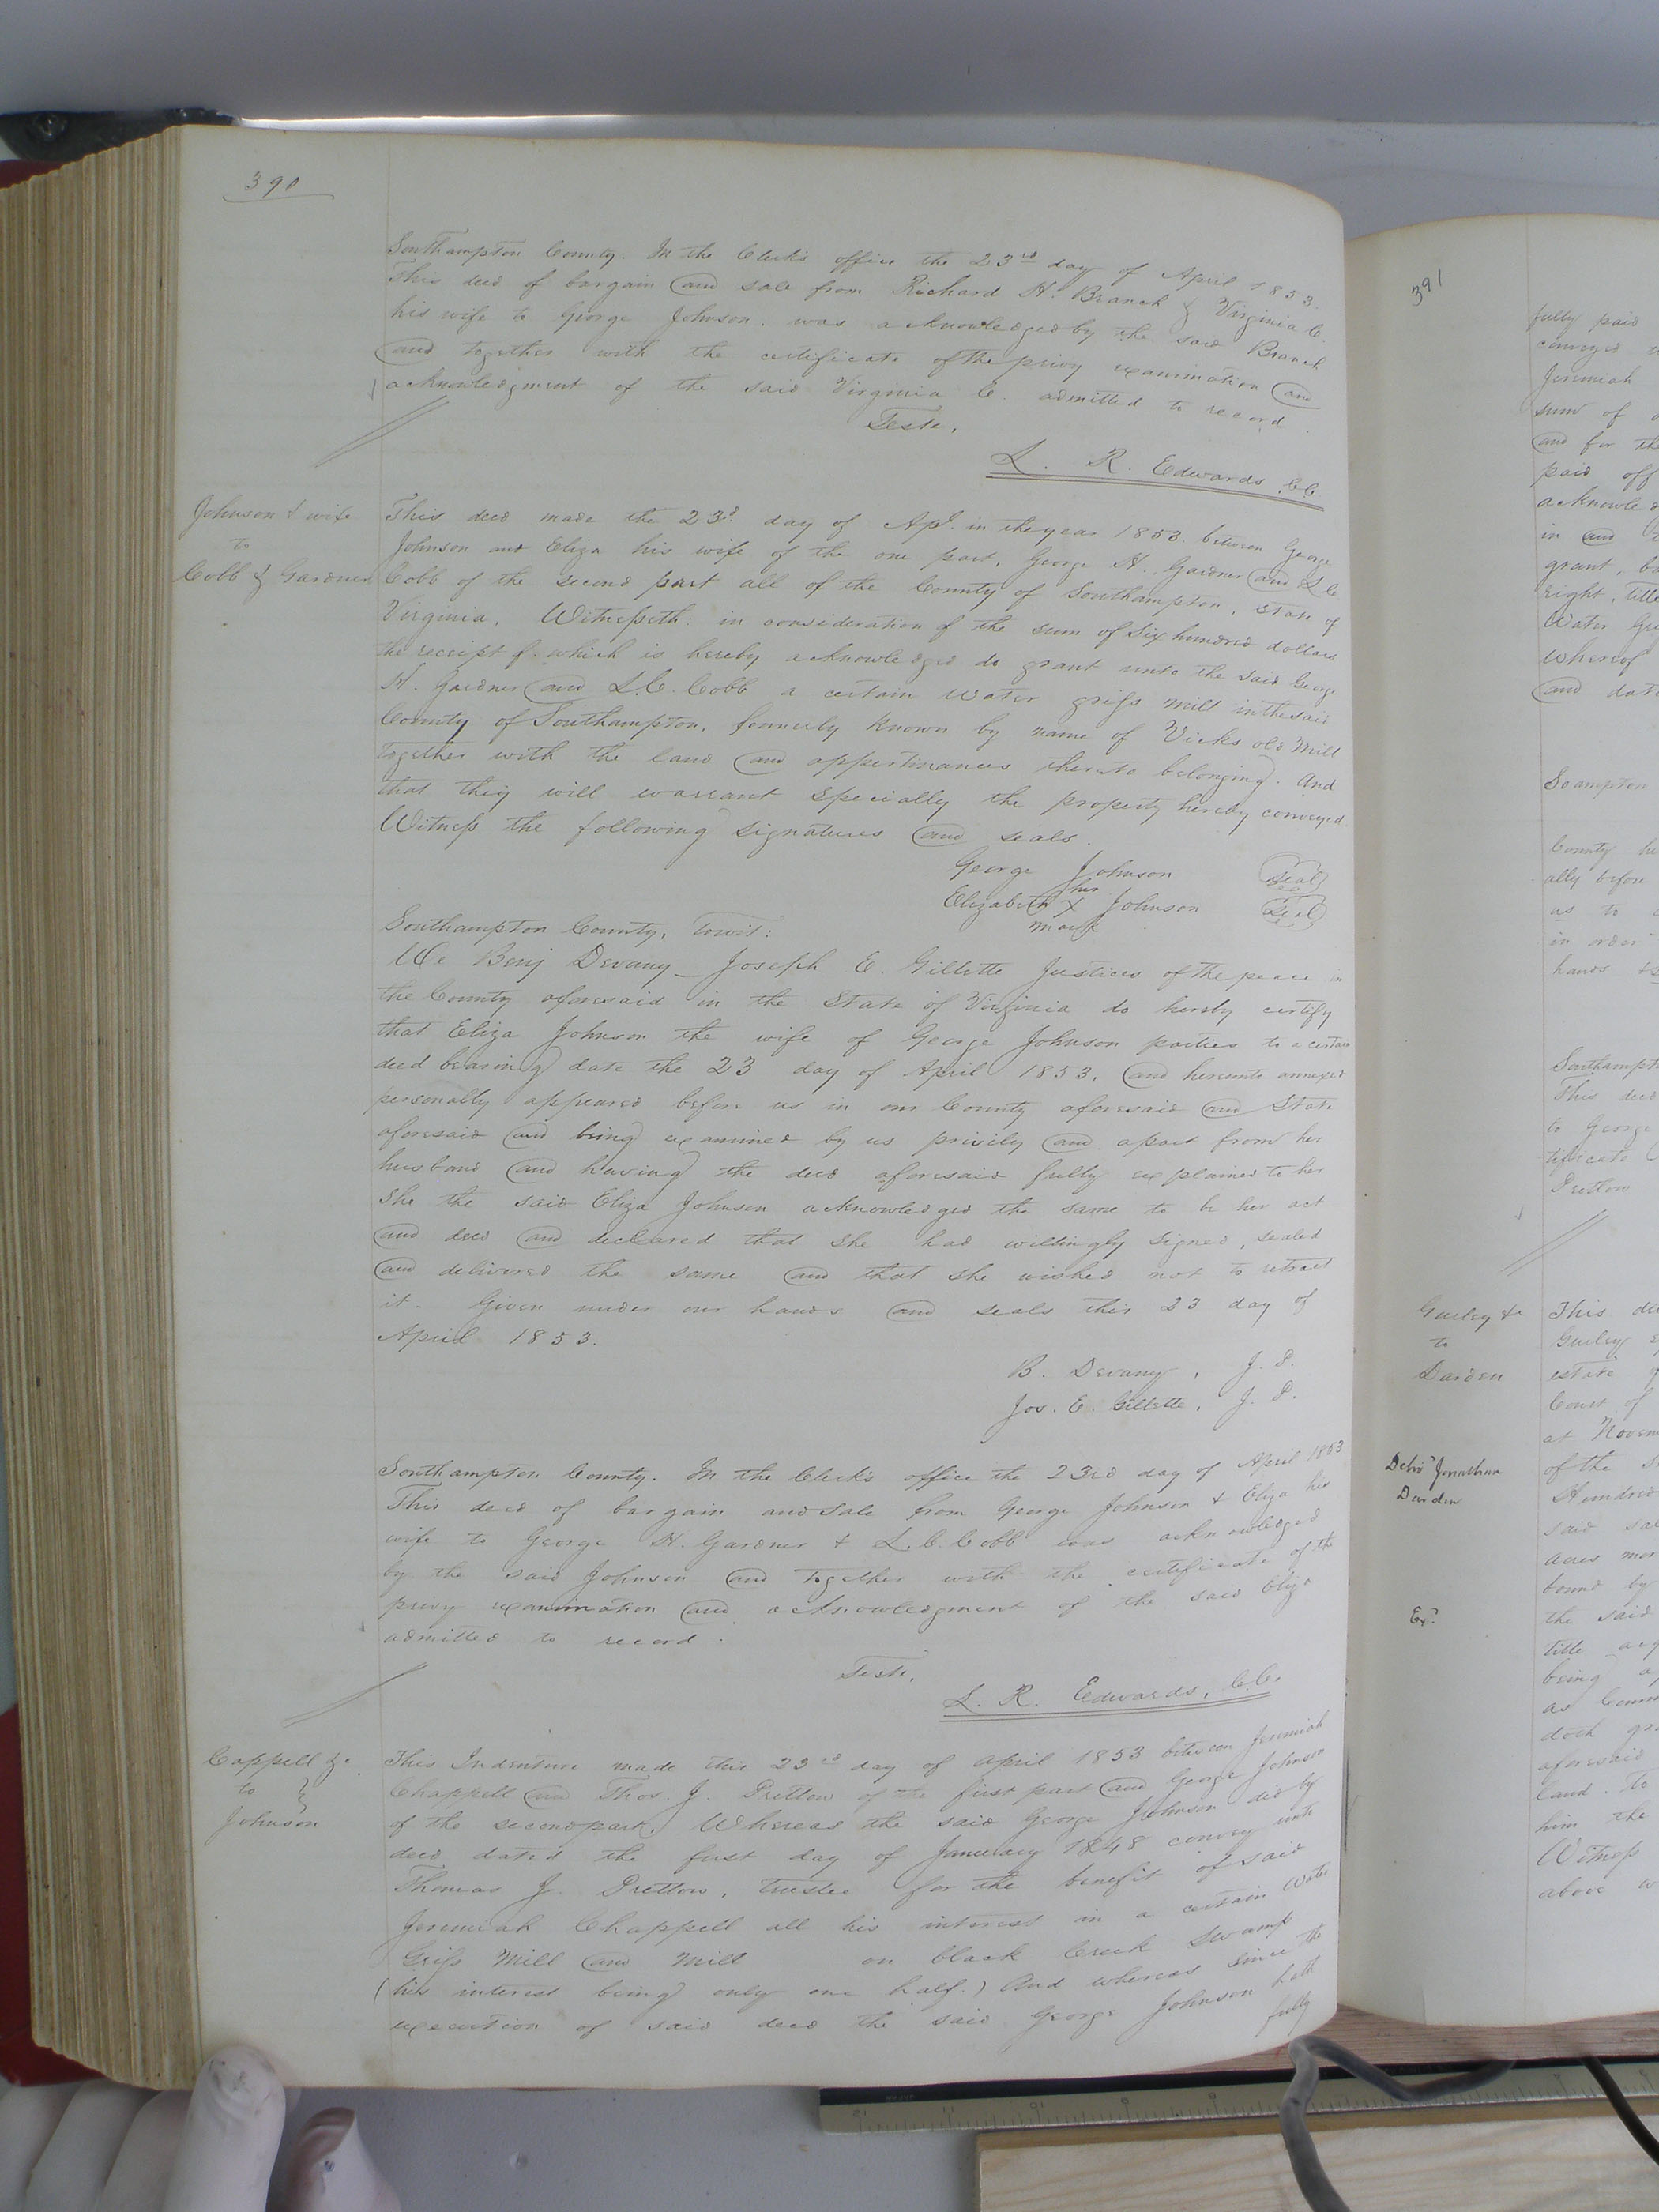 390
Southampton County. In the Clerk's office the 23rd day of April 1853.
This deed of bargain and sale from Richard H. Branch & Virginia C.
his wife to George Johnson. was acknowledged by the said Branch
and together with the certificate of the privy examination and
acknowledgment of the said Virginia C. admitted to record.
Teste,
L. R. Edwards, C.C.
Johnson & wife
to
Cobb & Gardner
This deed made the 23d. day of Apl. in the year 1853. between George
Johnson and Eliza his wife of the one part, George H. Gardner and L C
Cobb of the second part all of the County of Southampton, State of
Virginia, Witnesseth: in consideration of the sum of six hundred dollars
the receipt of which is hereby acknowledged do grant unto the said George
H. Gardner and L.C. Cobb a certain water griss mill in the said
County of Southampton, formerly known by name of Vicks old Mill
together with the land and appertinances thereto belonging. And
that they will warrant specially the property hereby conveyed.
Witness the following signatures and seals.
George Johnson Seal
her
Elizabeth X Johnson Seal
mark
Southampton County, towit:
We Benj Devany - Joseph E. Gillette Justices of the peace in
the County aforesaid in the State of Virginia do hereby certify
that Eliza Johnson the wife of George Johnson parties to a certain
deed bearing date the 23 day of April 1853, and hereunto annexed
personally appeared before us in our County aforesaid and State
aforesaid and being examined by us privily and apart from her
husband and having the deed aforesaid fully explained to her
She the said Eliza Johnson acknowledged the same to be her act
and deed and declared that she had willingly signed, sealed
and delivered the same and that she wished not to retract
it. Given under our hands and seals this 23 day of
April 1853.
B. Devany, J. P.
Jos. E. Gillette, J. P.
Southampton County. In the Clerk's office the 23rd day of April 1853
This deed of bargain and sale from George Johnson & Eliza his
wife to George H. Gardner & L. C. Cobb was acknowledged
by the said Johnson and together with the certificate of the
privy examination and acknowledgment of the said Eliza
admitted to record.
Teste,
L. R. Edwards, C.C.
Cappell &c.
to
Johnson
This Indenture made this 23rd day of April 1853 between Jeremiah
Chappell and Thos. J. Pretlow of the first part and George Johnson
of the second part. Whereas the said George Johnson did by
deed dated the first day of January 1848 convey unto
Thomas J. Pretlow, trustee for the benefit of said
Jeremiah Chappell all his interest in a certain Water
Griss Mill and Mill on black Creek Swamp
(his interest being only one half.) And whereas since the
execution of said deed the said George Johnson hath
fully
391
fully paid
conveyed
Jeremiah
sum of
and for the
paid off
in and
grant,
right, title
Water
whereof
and
County
ally before
us to
in order
hands
This deed
to George
Pretlow
Gurley &c
to
Darden
This
Gurley
estate
Court of
at
of the
Hundred
said
acres
bound by
the said
title
being
as
doth
aforesaid
land. To
him the
Witness
above
Deld Jonathan
Darden
Exd